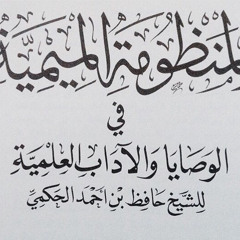 المنظومة الميمية
في
الوصايا والآداب العلمية
للشيخ حافظ بن أحمد الحكمي